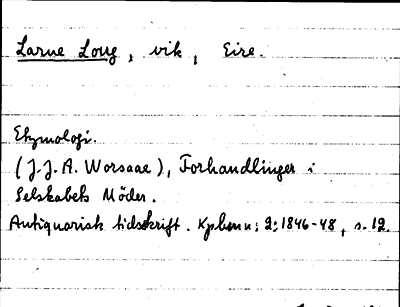 Larne Loug, vik, Eire.
Etymologi.
(J.J.A. Worsaae), Forhandlinger i
Selskabets Möder.
Antiquarisk tidsskrift. Kphvn: 2: 1846-48, s. 12.